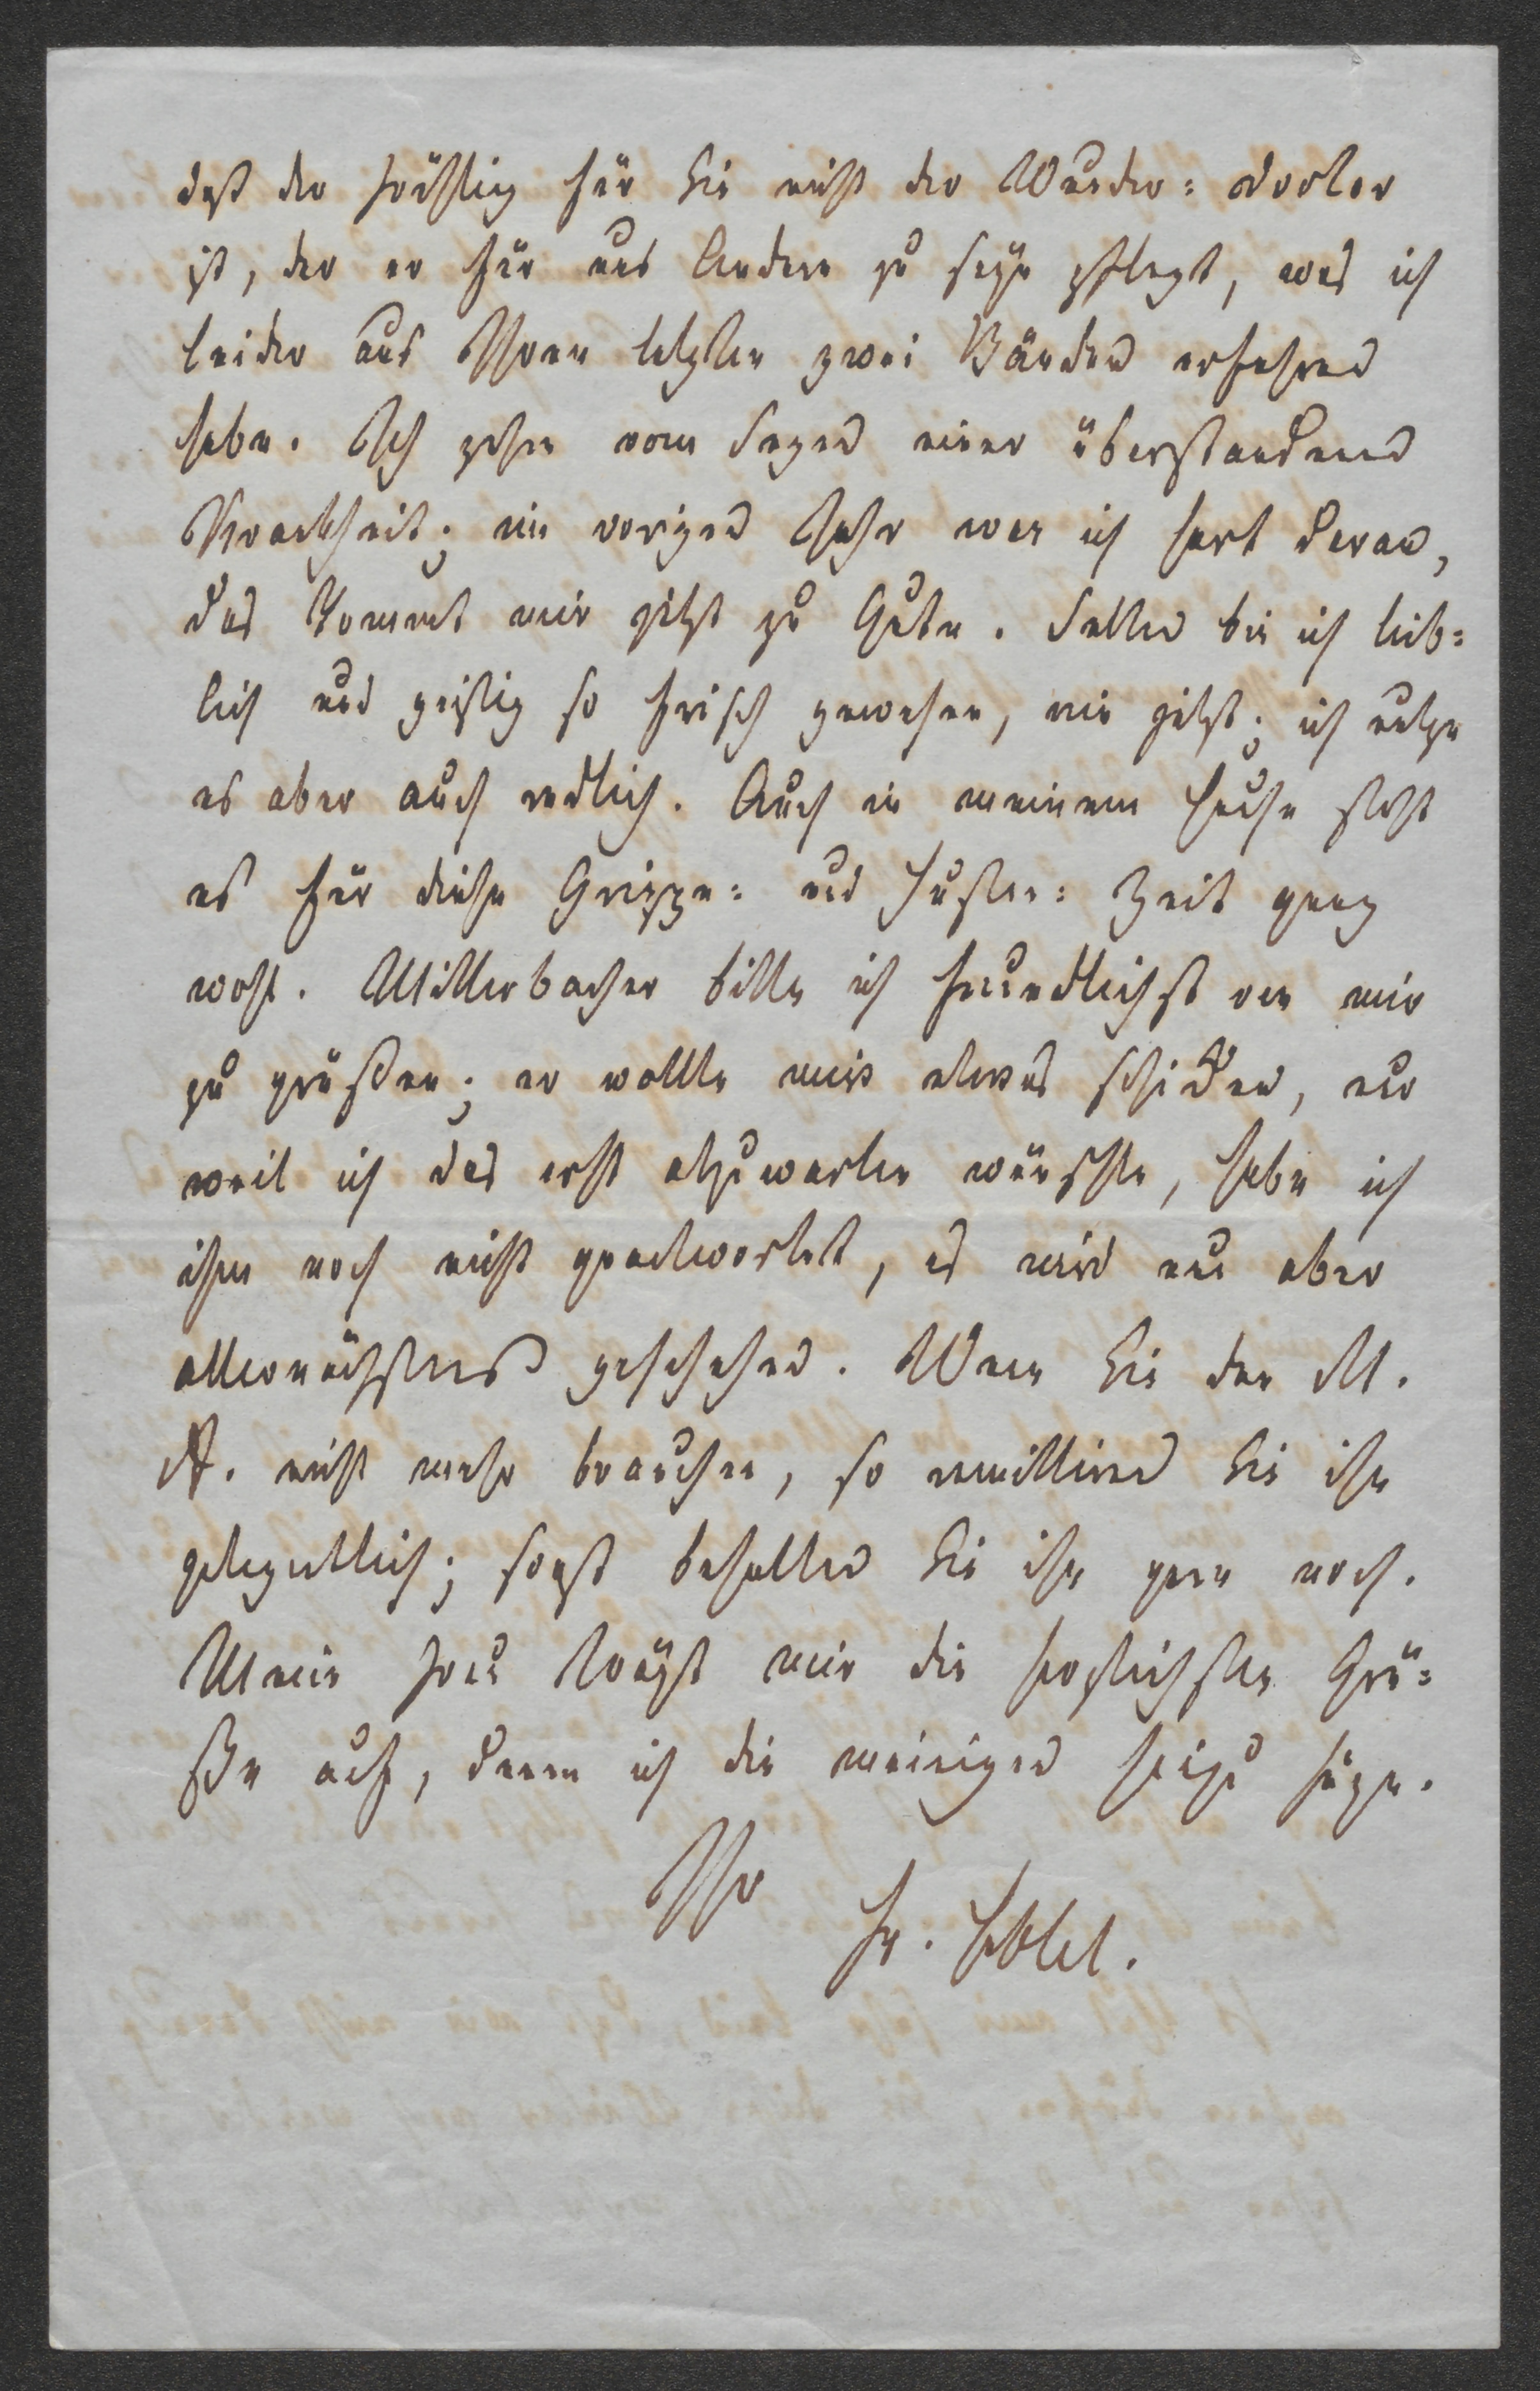 daß der Frühling für Sie nicht der Wunder=Doctor
ist, der er für uns Andere zu seyn pflegt, was ich
leider aus Ihren letzten zwei Bänden erfahren
habe. Ich zehre vom Segen einer überstandenen
Krankheit; im vorigen Jahr war ich hart daran,
das kommt mir jetzt zu Gute. Selten bin ich leib=
lich und geistig so frisch gewesen, wie jetzt; ich nutze
es aber auch redlich. Auch in meinem Hause steht
es für diese Grippe= und Husten=Zeit ganz
wohl. Mitterbacher bitte ich freundlichst von mir
zu grüßen; er wollte mir etwas schicken, nur
weil ich das erst abzuwarten wünschte, habe ich
ihm noch nicht geantwortet, es wird nun aber
allernächstens geschehen. Wenn Sie den M.
A. nicht mehr brauchen, so remittiren Sie ihn
gelegentlich; sonst behalten Sie ihn gern noch.
Meine Frau trägt mir die herzlichsten Grü=
ße auf, denen ich die meinigen hinzu füge.
Ihr
Fr. Hebbel.